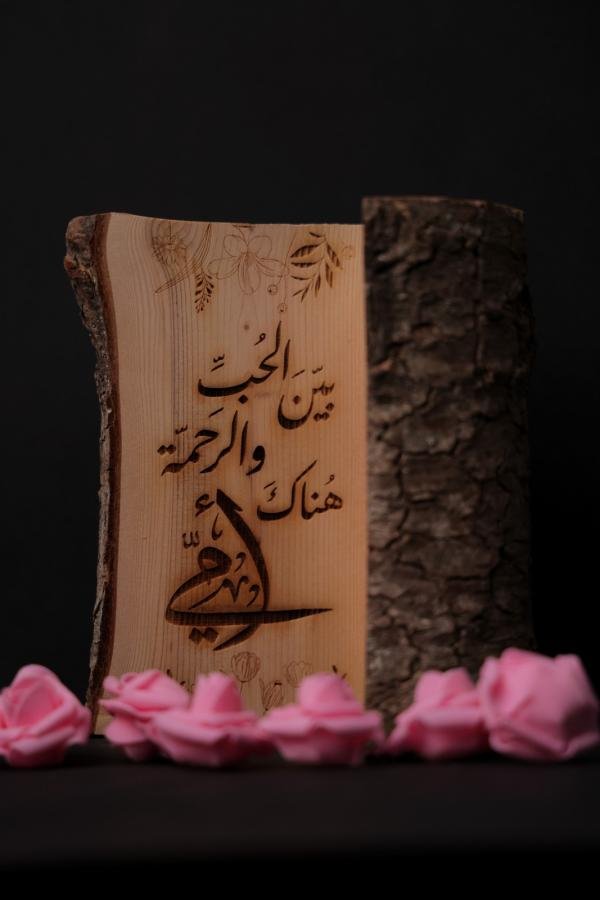 بيّن الحُبِّ
والرَحمّة
هُناكَ
أمّي